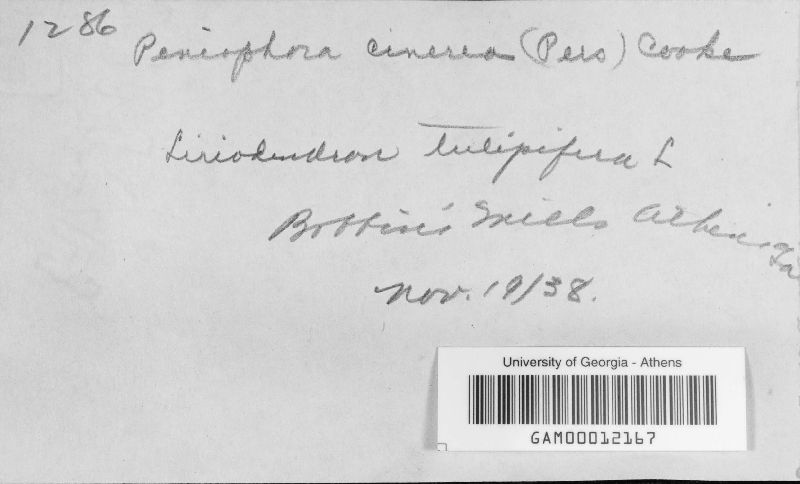 1286
Peniophora cinerea (Pers) Cooke
Liriodendron tulipifera L
Bobbin's Mills Athens, Ga
Nov. 19/38.
University of Georgia - Athens
GAM00012167